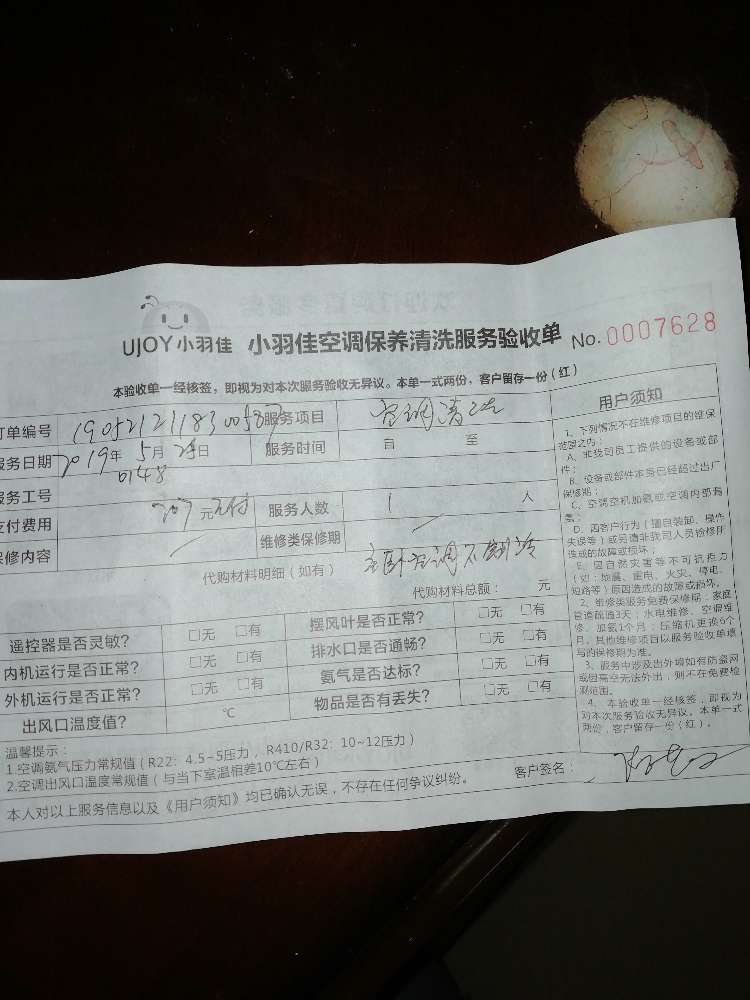 UJOY小羽佳 小羽佳空调保养清洗服务验收单 No. 0007628
本验收单一经核签，即视为对本次服务验收无异议。本单一式两份，客户留存一份（红）
订单编号 服务项目 空调清洗
服务日期 2019年5月 日 服务时间 自 至
服务工号 0148
支付费用 元 服务人数 1 人
保修内容 维修类保修期
代购材料明细（如有） 主卧空调不制冷
代购材料总额： 元
遥控器是否灵敏？ □无 □有 摆风叶是否正常？ □无 □有
内机运行是否正常？ □无 □有 排水口是否通畅？ □无 □有
外机运行是否正常？ □无 □有 氨气是否达标？ □无 □有
出风口温度值？ ℃ 物品是否有丢失？ □无 □有
温馨提示：
1.空调氨气压力常规值（R22：4.5~5压力，R410/R32：10~12压力）
2.空调出风口温度常规值（与当下室温相差10℃左右）
客户签名：
本人对以上服务信息以及《用户须知》均已确认无误，不存在任何争议纠纷。
用户须知
1、下列情况不在维修项目的维保
范围之内：
A、非我司员工提供的设备或部
件；
B、设备或部件本身已经超过出厂
保修期；
C、空调空机加氨或空调内部有
D、因客户行为（擅自装卸、操作
失误等）或另请非我司人员检修所
造成的故障或损坏；
E、因自然灾害等不可抗拒力
（如：地震、雷电、火灾、停电、
短路等）原因造成的故障或损坏。
2、维修类服务免费保修期：家庭
管道疏通3天；水电维修、空调维
修、加氨1个月；压缩机更换6个
月，其他维修项目以服务验收单填
写的保修期为准。
3、服务中涉及出外墙如有防盗网
或因高空无法外出，则不在免费检
测范围。
4、本验收单一经核签，即视为
对本次服务验收无异议。本单一式
两份，客户留存一份（红）。